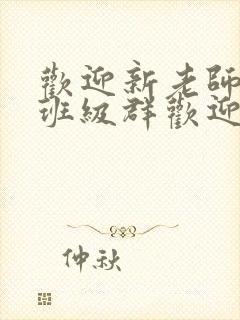 歡迎新老師
班級群歡迎
仲秋